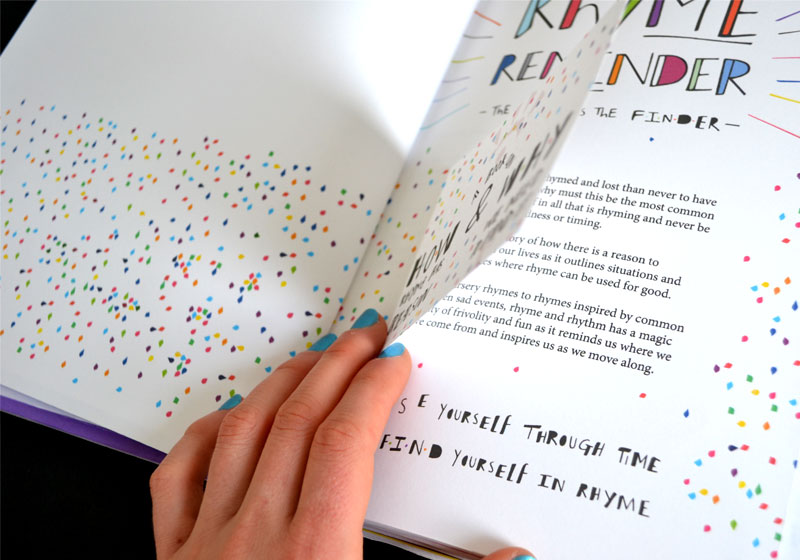 RHYME
REMINDER
– THE S THE FINDER –
hymed and lost than never to have
why must this be the most common
in all that is rhyming and never be
ness or timing.
ory of how there is a reason to
our lives as it outlines situations and
es where rhyme can be used for good.
sery rhymes to rhymes inspired by common
n sad events, rhyme and rhythm has a magic
ty of frivolity and fun as it reminds us where we
e come from and inspires us as we move along.
S E YOURSELF THROUGH TIME
F·I·N·D YOURSELF IN RHYME
HOW & WHY